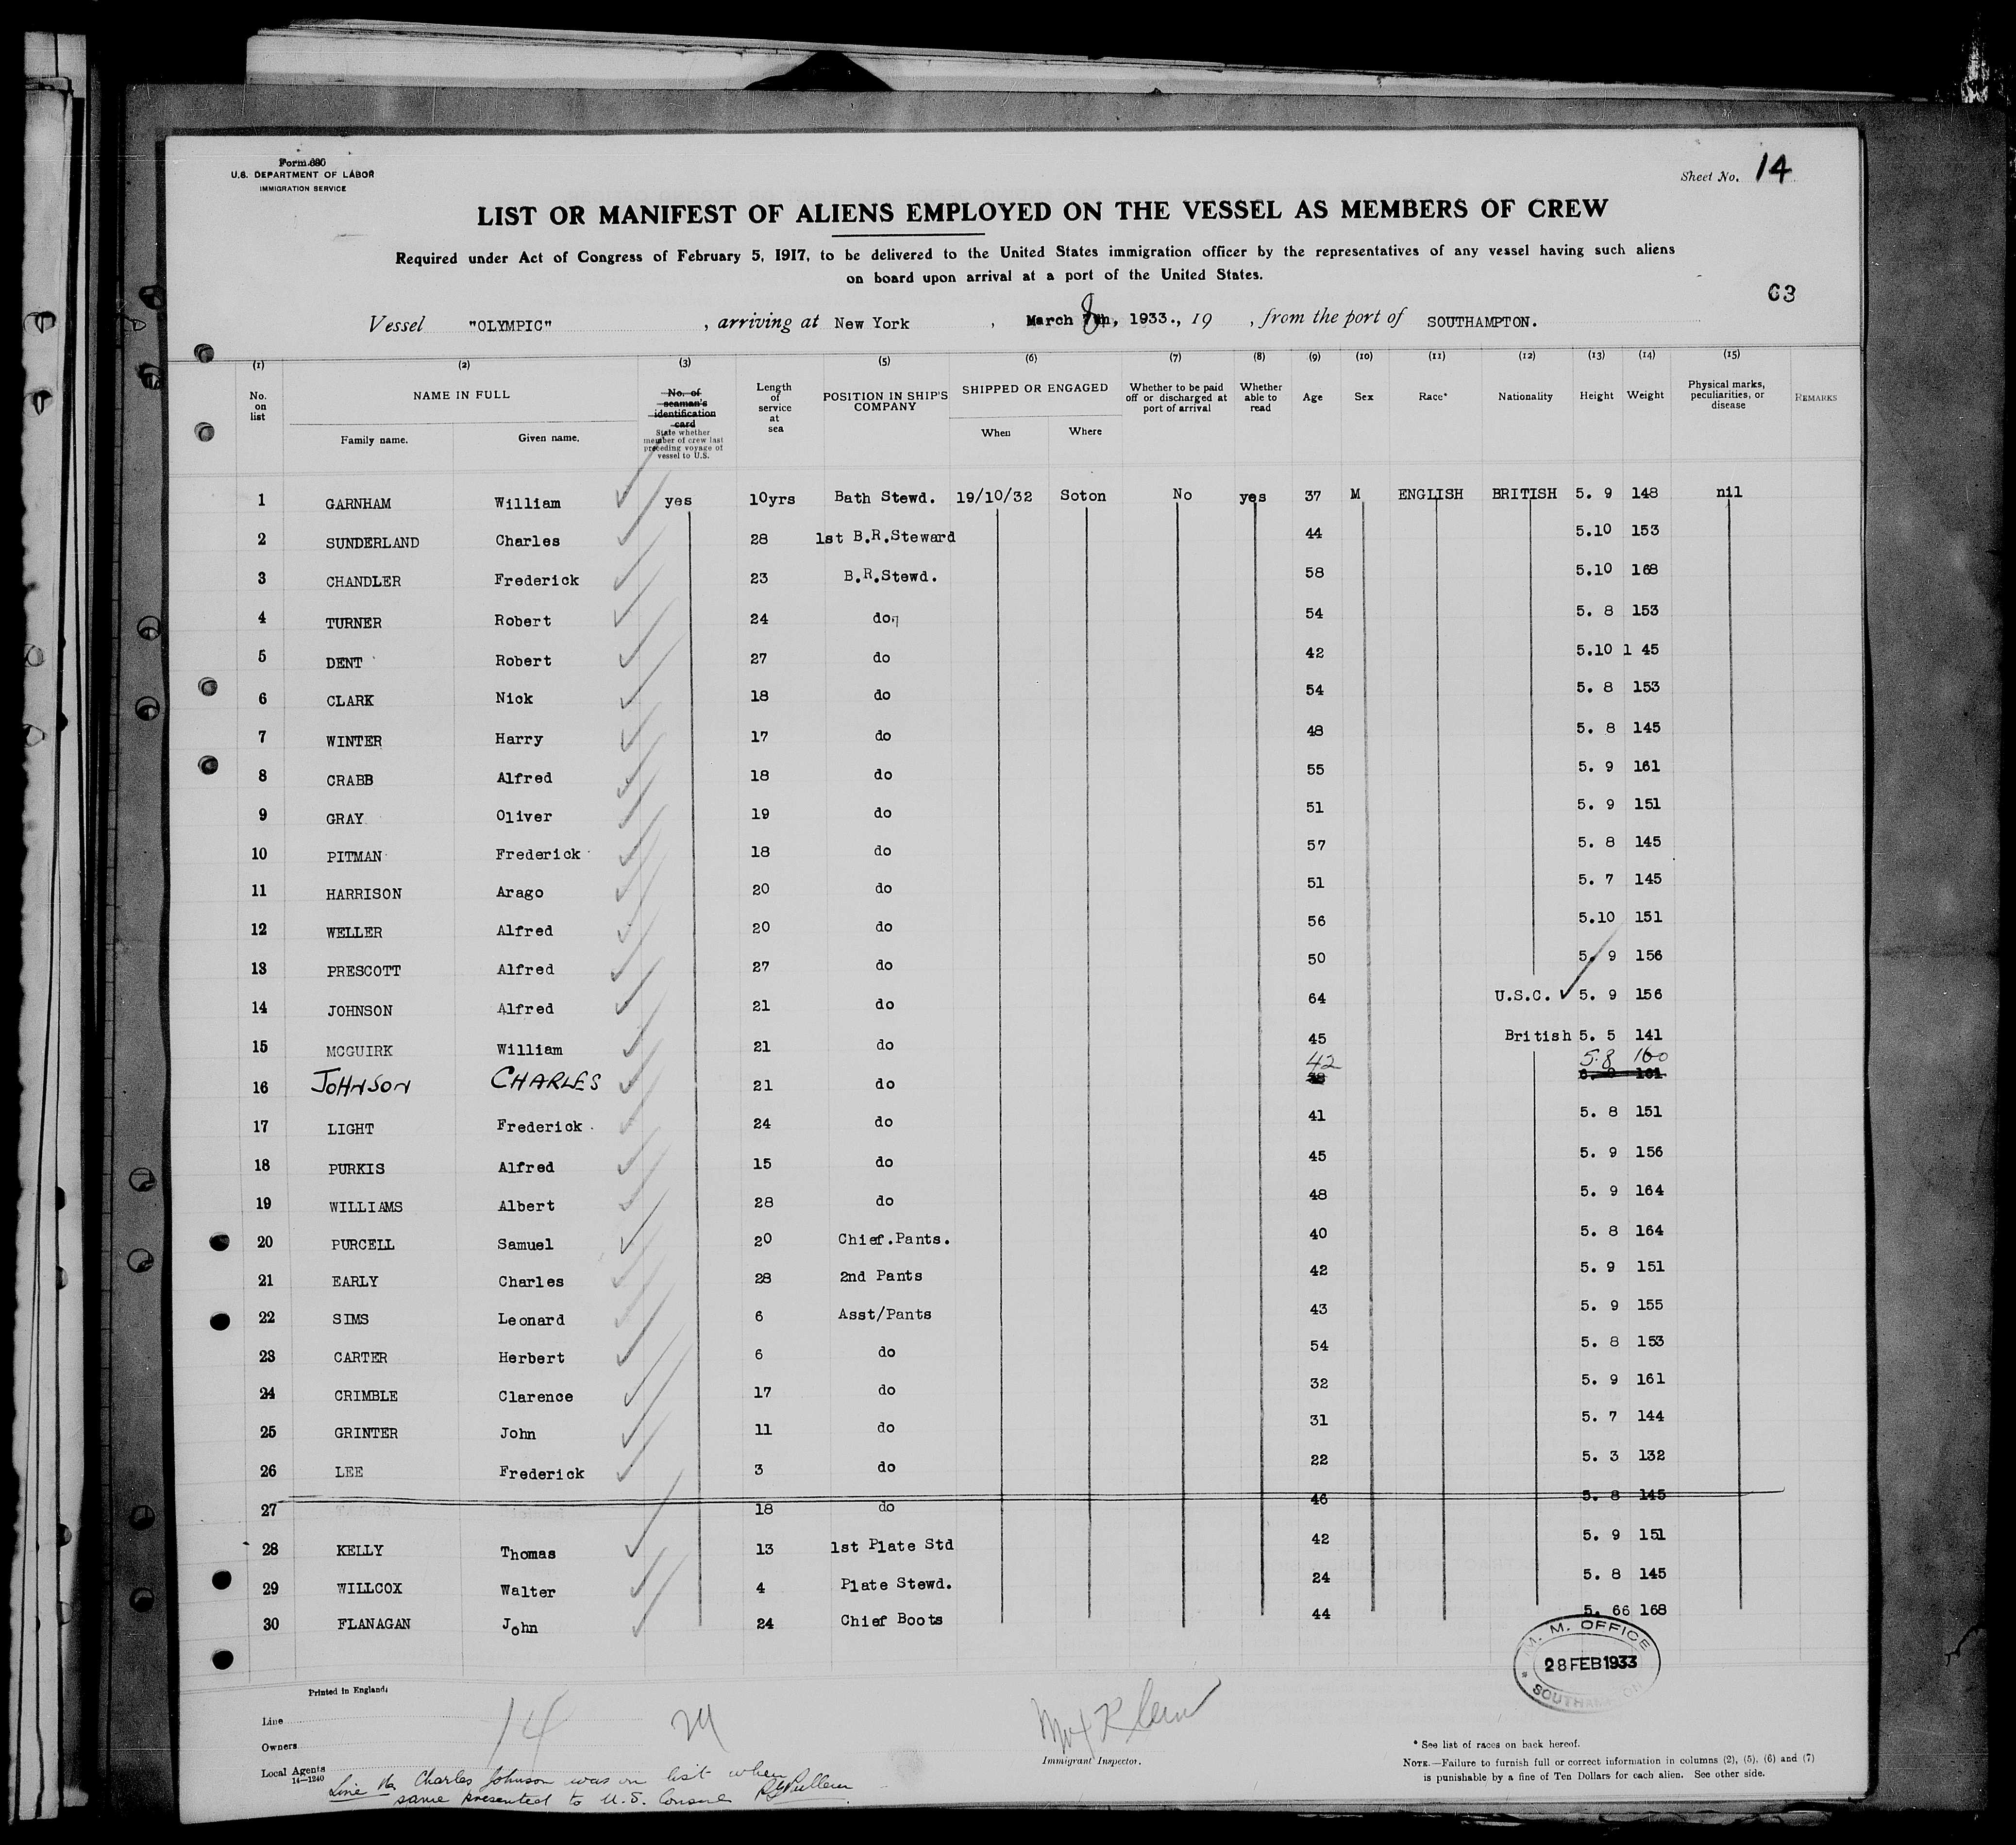 Form 680
U.S. DEPARTMENT OF LABOR
IMMIGRATION SERVICE
Sheet No. 14
LIST OR MANIFEST OF ALIENS EMPLOYED ON THE VESSEL AS MEMBERS OF CREW
Required under Act of Congress of February 5, 1917, to be delivered to the United States immigration officer by the representatives of any vessel having such aliens
on board upon arrival at a port of the United States.
63
Vessel "OLYMPIC" , arriving at New York , March 8, 1933., 19 , from the port of SOUTHAMPTON.
(1) (2) (3) (5) (6) (7) (8) (9) (10) (11) (12) (13) (14) (15)
No. on list NAME IN FULL Family name. Given name. No. of seaman's identification card State whether member of crew last preceding voyage of vessel to U.S. Length of service at sea POSITION IN SHIP'S COMPANY SHIPPED OR ENGAGED When Where Whether to be paid off or discharged at port of arrival Whether able to read Age Sex Race* Nationality Height Weight Physical marks, peculiarities, or disease REMARKS
1 GARNHAM William yes 10yrs Bath Stewd. 19/10/32 Soton No yes 37 M ENGLISH BRITISH 5. 9 148 nil
2 SUNDERLAND Charles 28 1st B.R.Steward 44 5.10 153
3 CHANDLER Frederick 23 B.R.Stewd. 58 5.10 168
4 TURNER Robert 24 do 54 5. 8 153
5 DENT Robert 27 do 42 5.10 1 45
6 CLARK Nick 18 do 54 5. 8 153
7 WINTER Harry 17 do 48 5. 8 145
8 CRABB Alfred 18 do 55 5. 9 161
9 GRAY Oliver 19 do 51 5. 9 151
10 PITMAN Frederick 18 do 57 5. 8 145
11 HARRISON Arago 20 do 51 5. 7 145
12 WELLER Alfred 20 do 56 5.10 151
13 PRESCOTT Alfred 27 do 50 5. 9 156
14 JOHNSON Alfred 21 do 64 U.S.C. 5. 9 156
15 MCGUIRK William 21 do 45 British 5. 5 141
16 JOHNSON CHARLES 21 do 42 5.8 160
17 LIGHT Frederick 24 do 41 5. 8 151
18 PURKIS Alfred 15 do 45 5. 9 156
19 WILLIAMS Albert 28 do 48 5. 9 164
20 PURCELL Samuel 20 Chief.Pants. 40 5. 8 164
21 EARLY Charles 28 2nd Pants 42 5. 9 151
22 SIMS Leonard 6 Asst/Pants 43 5. 9 155
23 CARTER Herbert 6 do 54 5. 8 153
24 CRIMBLE Clarence 17 do 32 5. 9 161
25 GRINTER John 11 do 31 5. 7 144
26 LEE Frederick 3 do 22 5. 3 132
27 18 do 46 5. 8 145
28 KELLY Thomas 13 1st Plate Std 42 5. 9 151
29 WILLCOX Walter 4 Plate Stewd. 24 5. 8 145
30 FLANAGAN John 24 Chief Boots 44 5. 66 168
M. M. OFFICE
28 FEB 1933
SOUTHAMPTON
Printed in England
Line
Owners
Local Agents
14—1240
14
Immigrant Inspector.
* See list of races on back hereof.
NOTE.—Failure to furnish full or correct information in columns (2), (5), (6) and (7)
is punishable by a fine of Ten Dollars for each alien. See other side.
Line 16 Charles Johnson was on list when
same presented to U.S. Consul